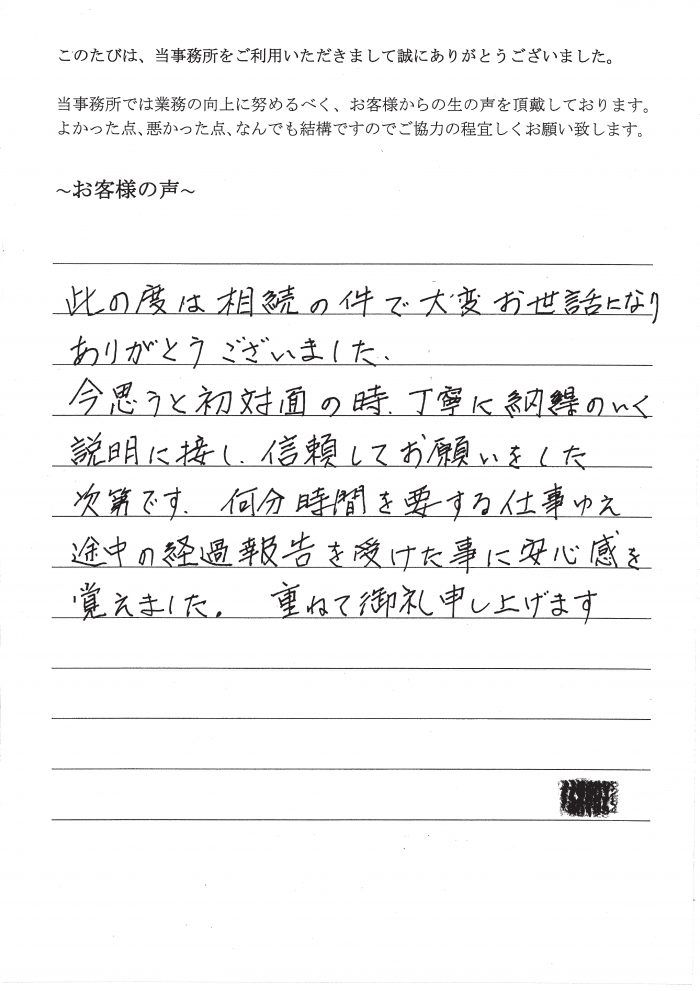 このたびは、当事務所をご利用いただきまして誠にありがとうございました。
当事務所では業務の向上に努めるべく、お客様からの生の声を頂戴しております。
よかった点、悪かった点、なんでも結構ですのでご協力の程宜しくお願い致します。
~お客様の声~
此の度は相続の件で大変お世話になり
ありがとうございました.
今思うと初対面の時.丁寧に納得のいく
説明に接し.信頼してお願いをした
次第です. 何分時間を要する仕事ゆえ
途中の経過報告を受けた事に安心感を
覚えました。 重ねて御礼申し上げます